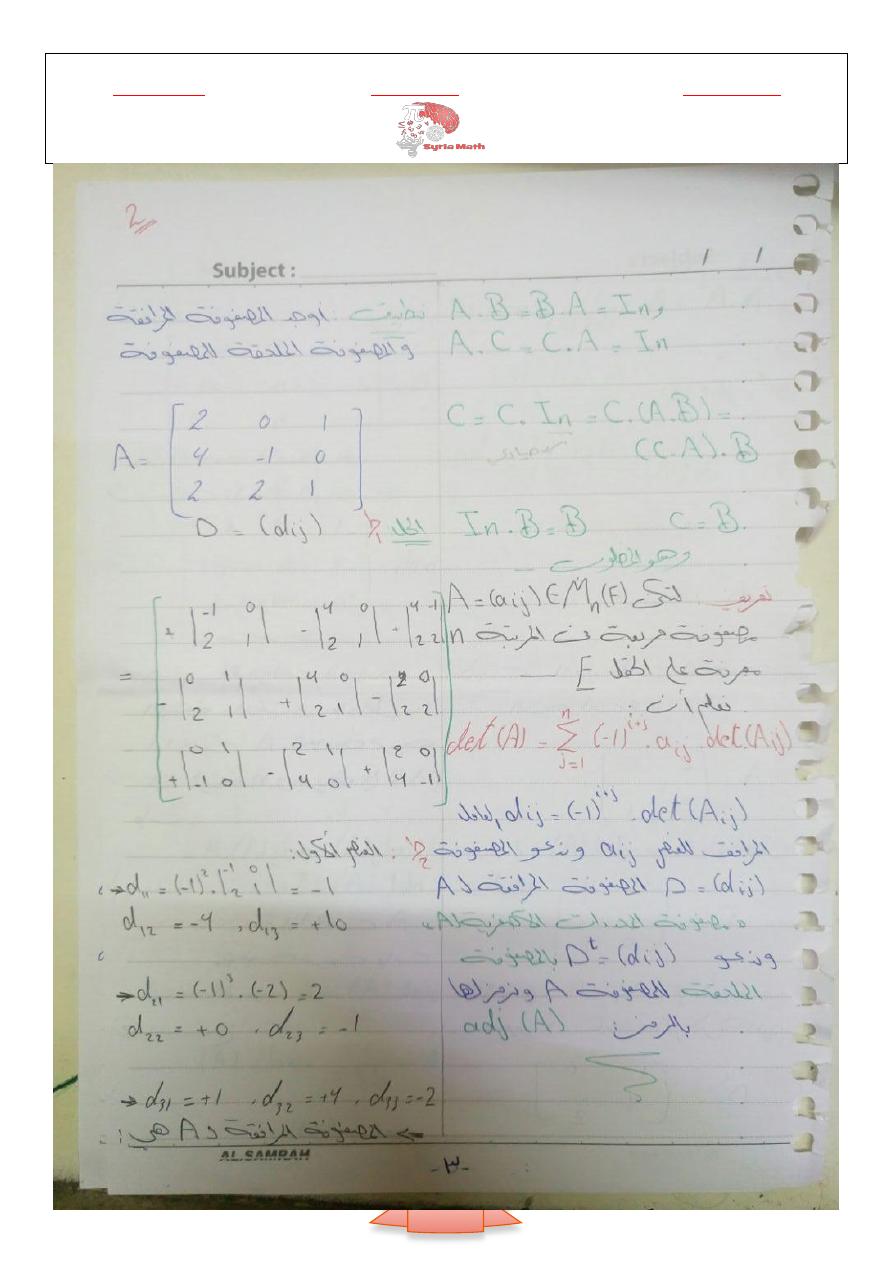 Syria Math
2
Subject :
/ /
A.B = B.A = In و
A.C = C.A = In
C = C. In = C.(A.B) =
(C.A).B
In.B = B C = B.
وهو المطلوب
تعريف لتكن A = (aij) ∈ Mn(F)
مصفوفة مربعة من المرتبة n
معرفة على الحقل F
نعلم أن:
det(A) = Σ_{j=1}^{n} (-1)^{i+j} . aij . det(Aij)
dij = (-1)^{i+j} . det(Aij)
المرافق للعنصر aij وندعو المصفوفة
D = (dij) المصفوفة المرافقة لـ A
وندعو D^t = (dij) بالمصفوفة
الملحقة للمصفوفة A ونرمز لها
بالرمز: adj (A)
تطبيق: أوجد المصفوفة المرافقة
والمصفوفة الملحقة للمصفوفة
A = [
2 0 1
4 -1 0
2 2 1
]
الحل D = (dij)
= [
+ |-1 0; 2 1| - |4 0; 2 1| - |4 -1; 2 2|
- |0 1; 2 1| + |4 0; 2 1| - |2 0; 2 2|
+ |0 1; -1 0| - |2 1; 4 0| + |2 0; 4 -1|
]
السطر الأول:
→ d11 = (-1)^2 . |-1 0; 2 1| = -1
d12 = -4 , d13 = +10
→ d21 = (-1)^3 . (-2) = 2
d22 = +0 , d23 = -1
→ d31 = +1 , d32 = +4 , d33 = -2
← المصفوفة المرافقة لـ A هي:
AL.SAMRAH
-٣-